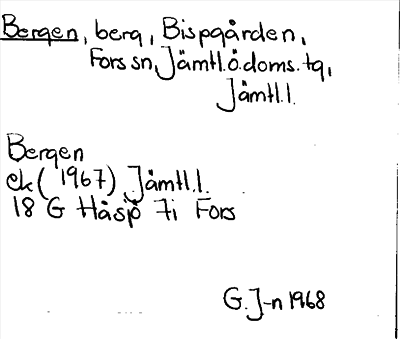 Bergen, berg, Bispgården,
Fors sn, Jämtl.ö.doms. tg,
Jämtl.l.
Bergen
ek (1967) Jämtl.l.
18 G Håsjö 7i Fors
G. J-n 1968